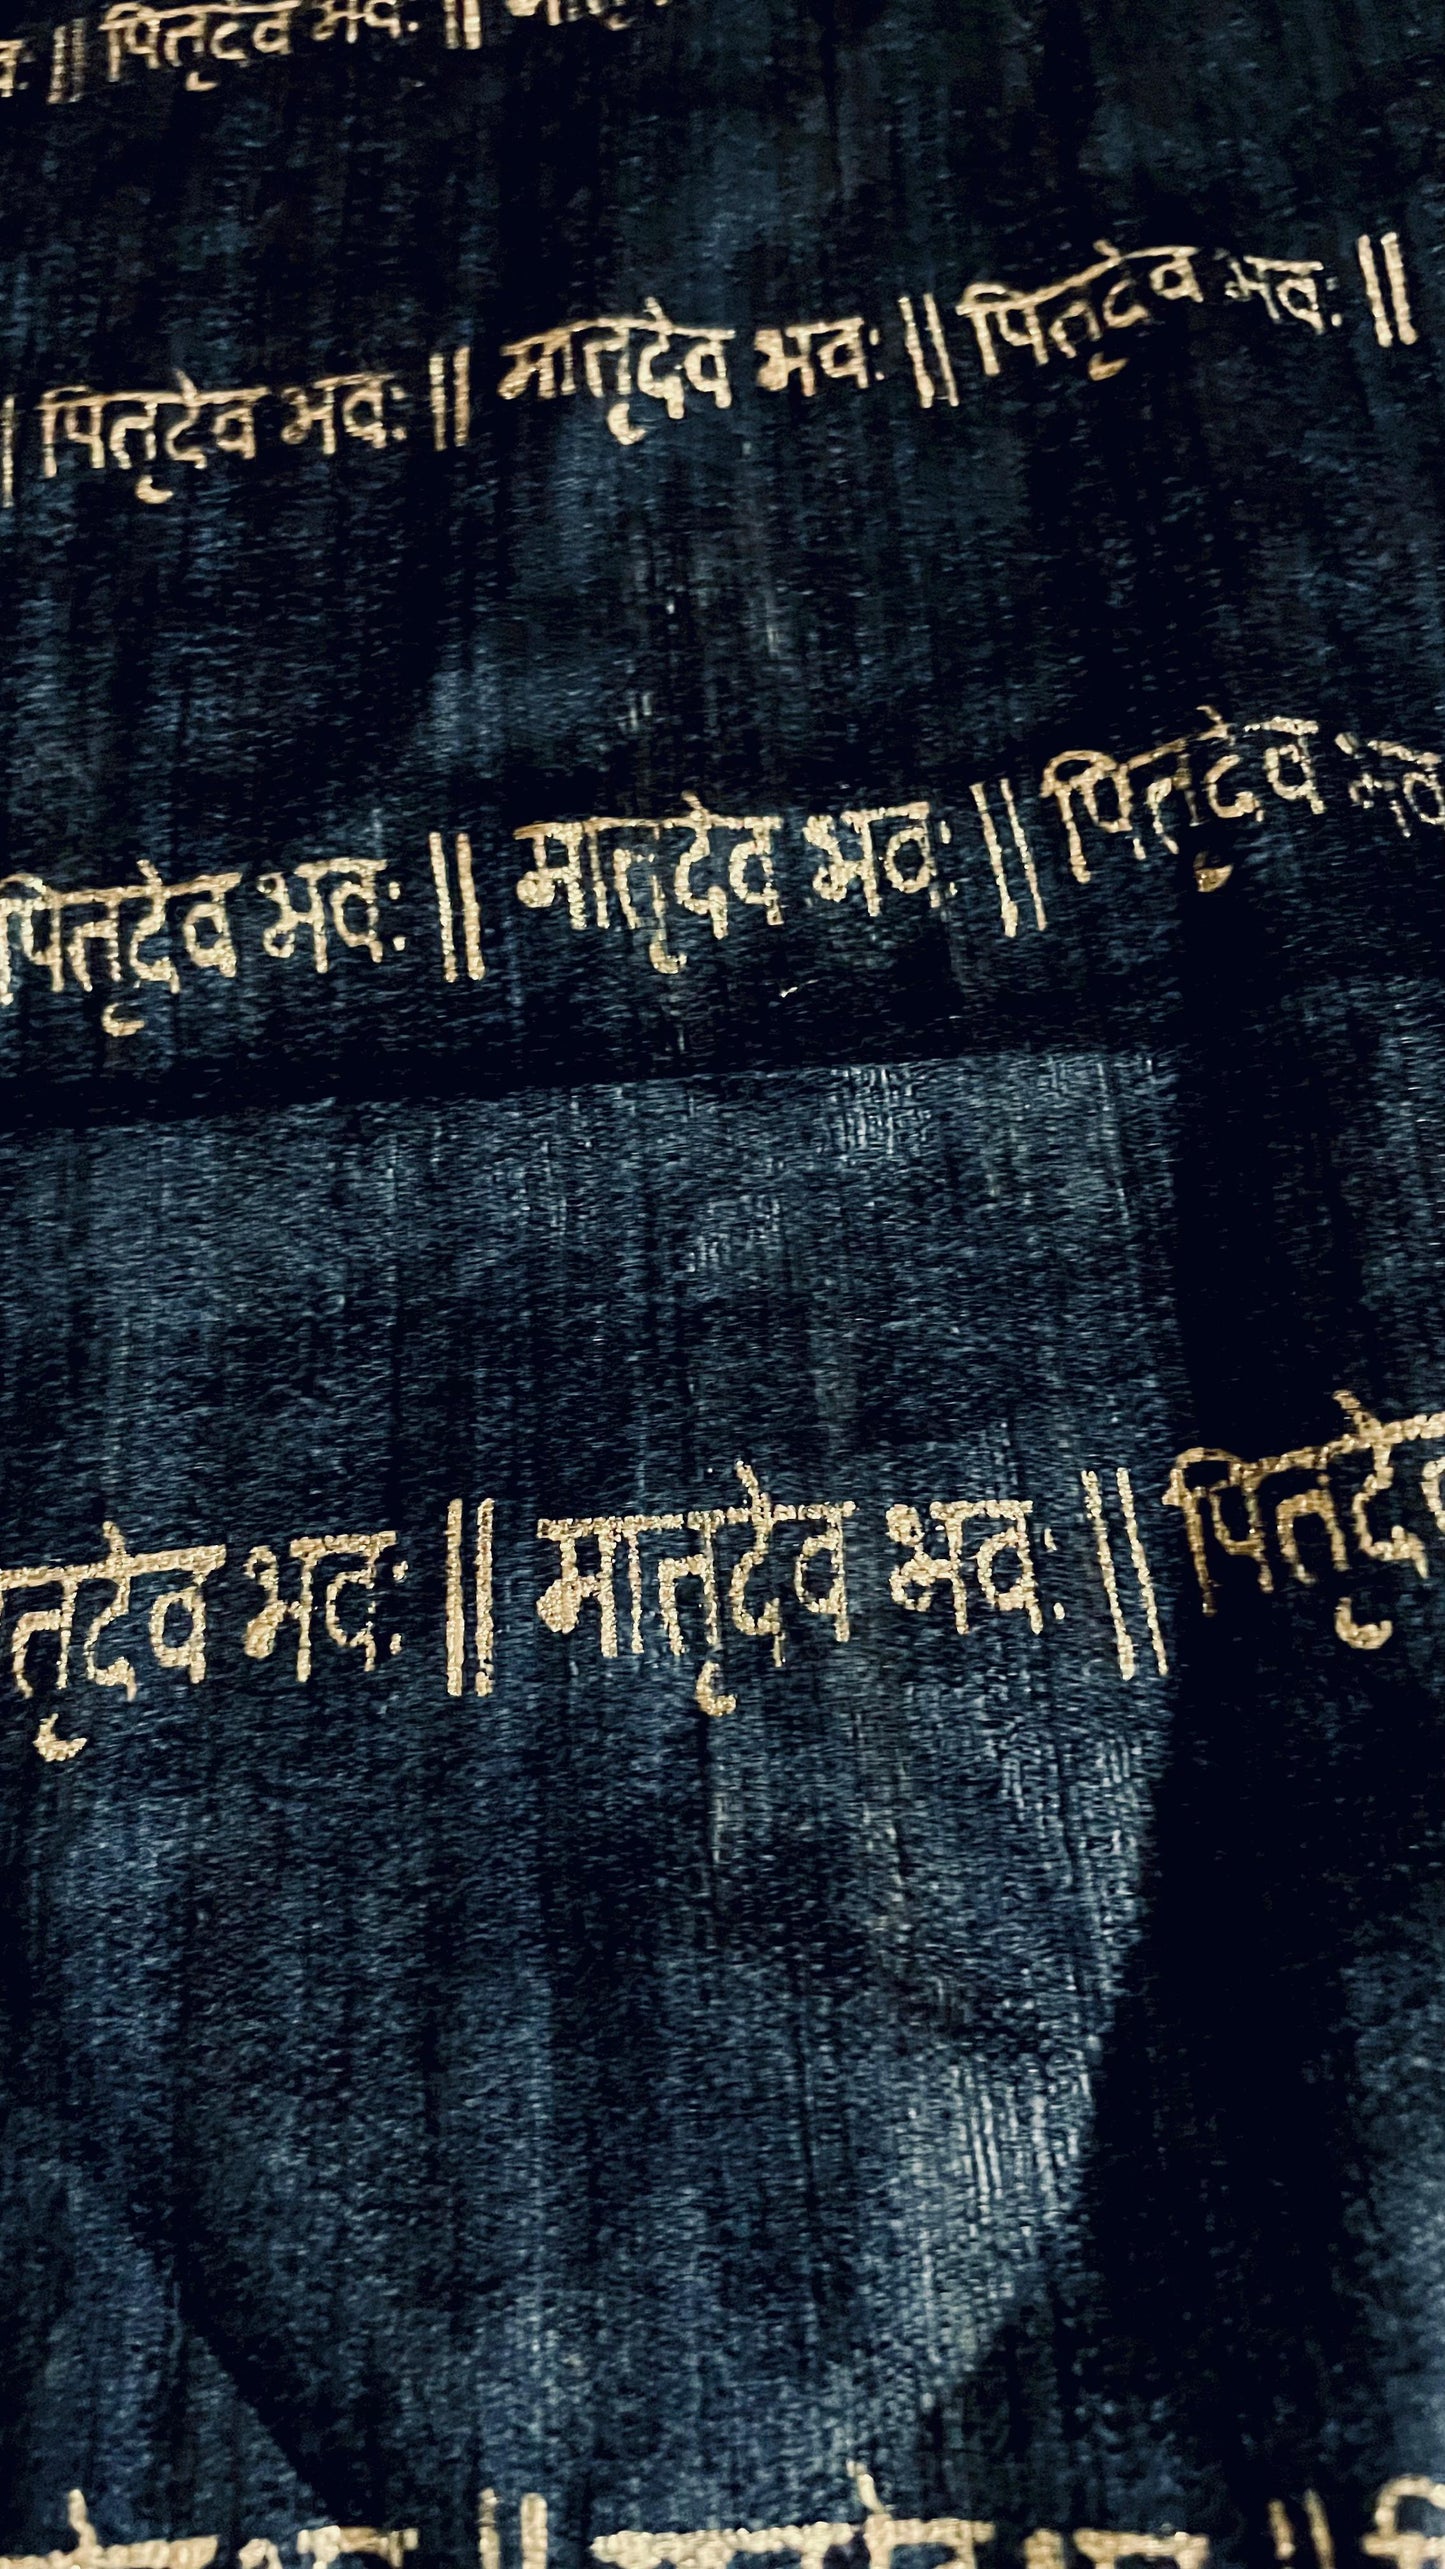 || पितृदेव भवः ||
|| पितृदेव भवः || मातृदेव भवः || पितृदेव भवः ||
पितृदेव भवः || मातृदेव भवः || पितृदेव
भवः || मातृदेव भवः ||